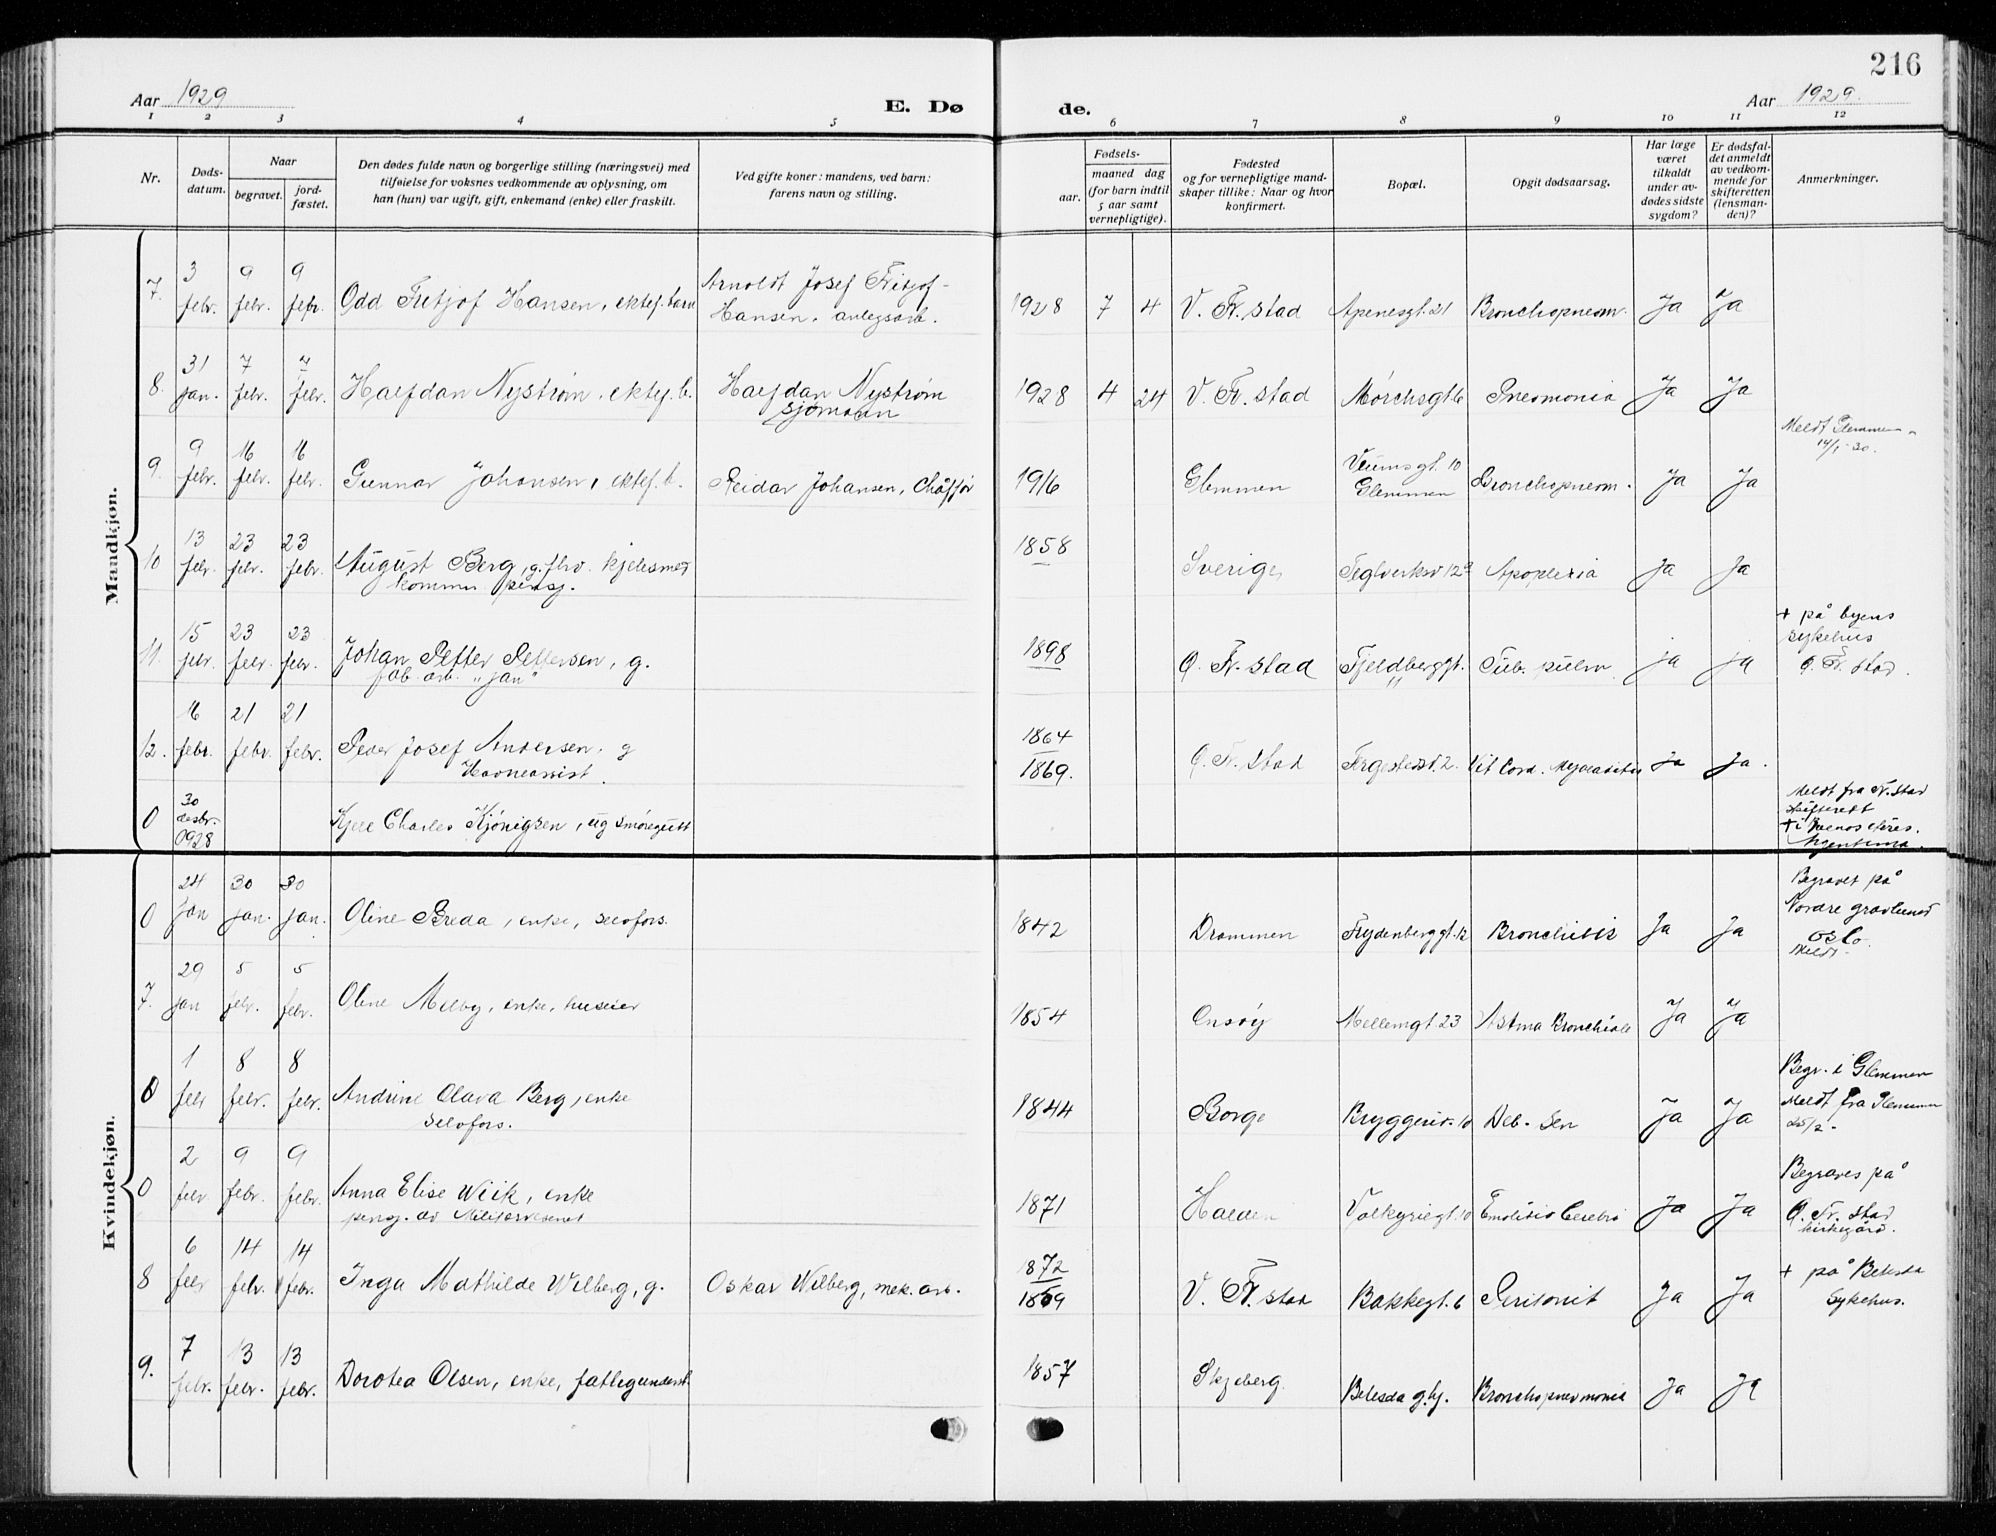 216
Aar 1929
E. Dø
de.
Aar 1929.
1 2 3 4 5 6 7 8 9 10 11 12
Nr.
Døds-
datum.
Naar
begravet.
jord-
fæstet.
Den dødes fulde navn og borgerlige stilling (næringsvei) med
tilføielse for voksnes vedkommende av oplysning, om
han (hun) var ugift, gift, enkemand (enke) eller fraskilt.
Ved gifte koner: mandens, ved barn:
farens navn og stilling.
Fødsels-
aar.
maaned dag
(for barn indtil
5 aar samt
vernepligtige).
Fødested
og for vernepligtige mand-
skaper tillike: Naar og hvor
konfirmert.
Bopæl.
Opgit dødsaarsag.
Har læge
været
tilkaldt
under av-
dødes sidste
sygdom?
Er dødsfal-
det anmeldt
av vedkom-
mende for
skifteretten
(lensman-
den)?
Anmerkninger.
Mandkjøn.
7. 3 febr. 9 febr. 9 febr. Odd Fritjof Hansen, ektef. barn
Arnoldt Josef Fritjof-
Hansen. anlegsarb.
1928 7 4 V. Fr. stad Apenesgt. 21 Bronchopneom. Ja Ja
8. 31 jan. 7 febr. 7 febr. Halfdan Nystrøm, ektef. b.
Halfdan Nystrøm
sjømann
1928 4 24 V. Fr. stad Mørchsgt 6 Pneomonia Ja Ja
9. 9 febr. 16 febr. 16 febr. Gunnar Johansen, ektef. b. Reidar Johansen, Chåffør
1916 Glemmen
Veumsgt. 10
Glemmen
Bronchopneom. Ja Ja
Meldt Glemmen
14/1-30.
10 13 febr. 23 febr. 23 febr. August Berg, g. fhv. kjelesmed
kommun pensj.
1858 Sverige Teglverksv 12a Apoplexia Ja Ja
11. 15 febr. 23 febr. 23 febr. Johan Petter Pettersen, g.
fab. arb. "Jan"
1898 Ø. Fr. stad Fjeldberggt. 11 Tub. pulm. Ja Ja
+ på byens
sykehus
Ø. Fr. stad.
12. 16 febr. 21 febr. 21 febr. Peder Josef Andersen, g
Havneassist.
1864
1869.
Ø. Fr. stad Fergestedsv. 2. Vit Cord. Myocaditis Ja Ja.
0 30 desbr. 1928 Kjell Charles Kjönigsen, ug smöregutt
Meldt fra Fr. stad
skifterett
+ i Buenos Aires.
Argentina.
Kvindekjøn.
0 24 jan 30 jan. 30 jan. Oline Breda, enke, selvfors.
1842 Drammen Frydenberggt. 12 Bronchitis Ja Ja
Begravet på
Nordre gravlund
Oslo.
Meldt.
7. 29 jan 5 febr. 5 febr. Oline Melby, enke, huseier
1854 Onsøy Mellemgt. 23 Astma Bronchiale Ja Ja
0 1 febr 8 febr. 8 febr. Andrine Olava Berg, enke
selvfors.
1844 Borge Bryggeriv. 10 Deb. Sen Ja Ja
Begr. i Glemmen
Meldt fra Glemmen
25/2-
0 2 febr 9 febr. 9 febr. Anna Elise Wiik, enke
pensj. av Militærvesenet
1871 Halden Valkyriegt. 10 Emolitio Cerebri Ja Ja
Begraves på
Ø. Fr. stad
kirkegård.
8 6 febr 14 febr. 14 febr. Inga Mathilde Wilberg, g. Oskar Wilberg, mek. arb.
1872
1869
V. Fr. stad Bakkegt. 6 Peritonit Ja Ja
+ på Betesda
Sykehus.
9. 7 febr. 13 febr. 13 febr. Dorotea Olsen, enke, fattigunderst.
1857 Skjeberg Betesda g.hj. Bronchopnevmonia Ja Ja